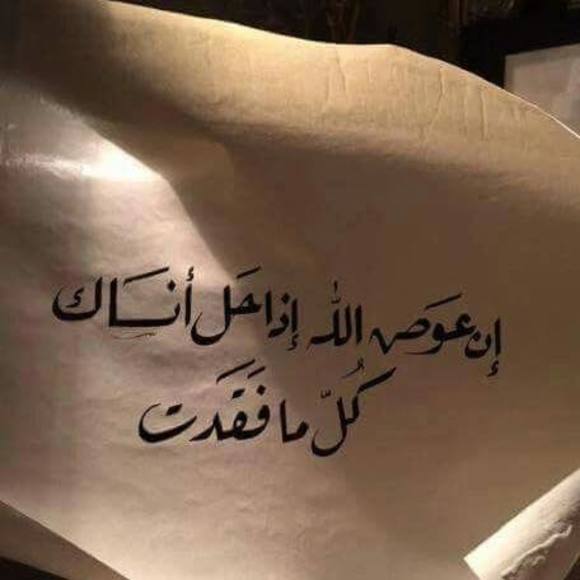 إن عوَص الله إذا حَل أنسَاك
كُلّ ما فَقَدَت